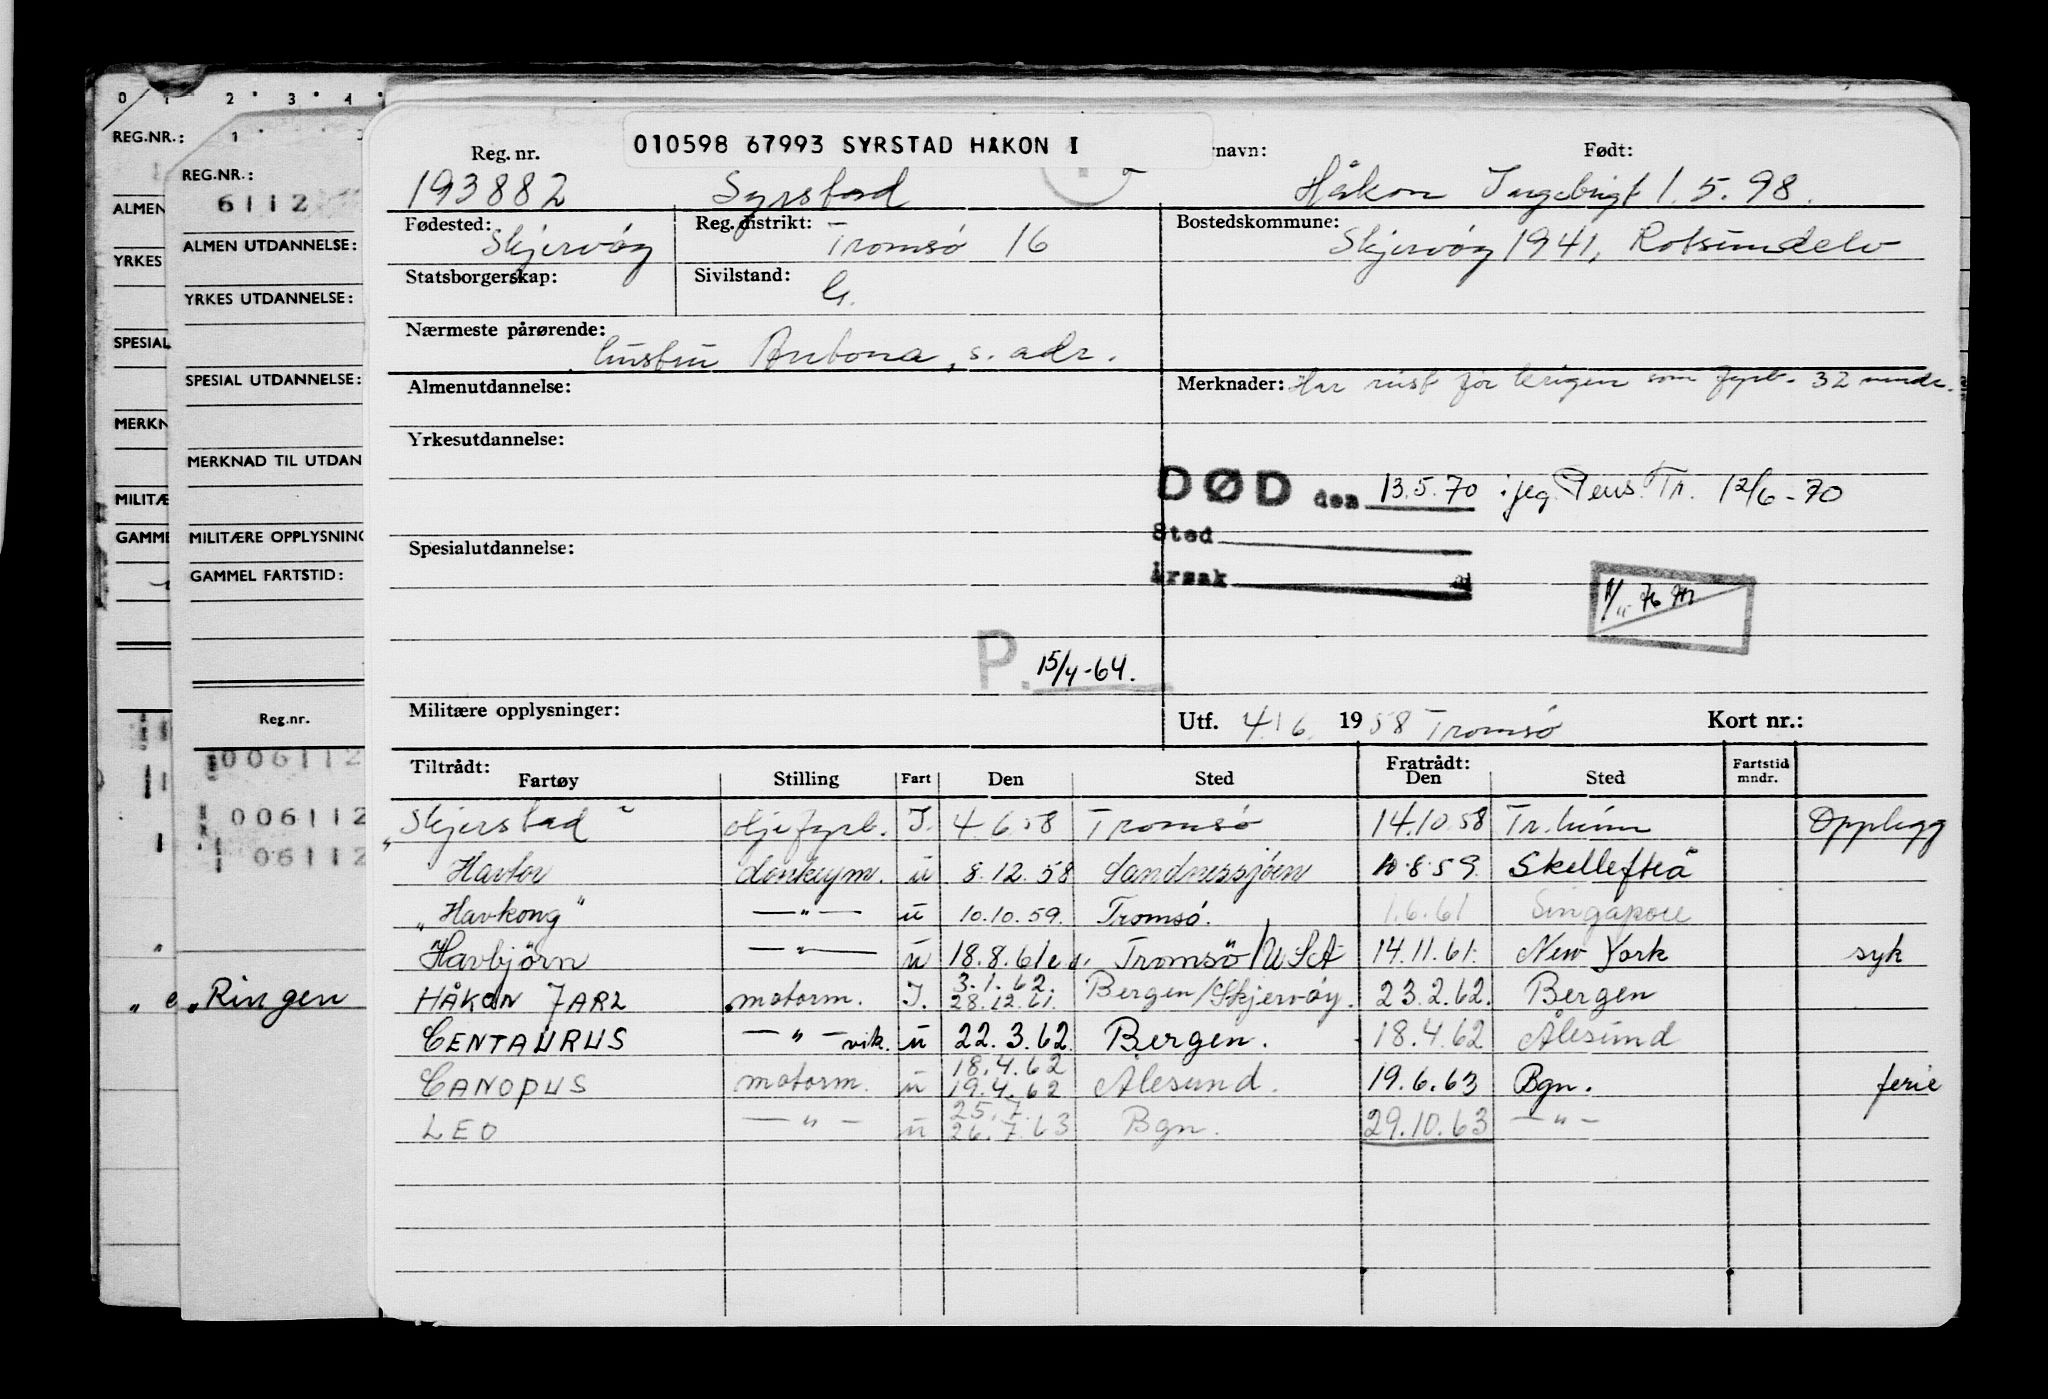 0 1 2 3 4
REG.NR.: 1
REG.NR.:
6112
ALMEN
ALMEN UTDANNELSE:
YRKES
YRKES UTDANNELSE:
SPESIAL
SPESIAL UTDANNELSE:
MERKN
MERKNAD TIL UTDAN
MILITÆ
GAMME
MILITÆRE OPPLYSNING
GAMMEL FARTSTID:
Reg.nr.
006112
006112
06112
„Ringen
010598 67993 SYRSTAD HÅKON I
Reg. nr. rnavn: Født:
193882 Syrstad Håkon Ingebrigt 1.5.98.
Fødested: Reg. distrikt: Bostedskommune:
Skjervøy Tromsø 16 Skjervøy 1941, Rotsundelv
Statsborgerskap: Sivilstand:
G.
Nærmeste pårørende:
hustru Antona, s. adr.
Almenutdannelse: Merknader: Har reist før krigen som fyrb. 32 mndr.
Yrkesutdannelse:
DØD den 13.5.70 Pens. Tr. 12/6-70
Sted
Årsak
Spesialutdannelse:
P. 15/4-64.
Militære opplysninger: Utf. 4/6 1958 Tromsø Kort nr.:
Tiltrådt: Fratrådt: Fartstid
Fartøy Stilling Fart Den Sted Den Sted mndr.
„Skjerstad" oljefyrb. I. 4 6.58 Tromsø 14.10.58 Tr.heim Opplegg
Havtor donkeym. u 8.12.58 Sandnessjøen 10.8.59. Skellefteå
„Havkong" —"— u 10.10.59. Tromsø. 1.6.61 Singapore
Havbjörn —"— u 18.8.61 Tromsö/USA 14.11.61. New York syk
3.1.62.
HÅKON JARL motorm. I. 28.12.61. Bergen/Skjervøy. 23.2.62. Bergen
CENTAURUS —"— vik. u 22.3.62. Bergen. 18.4.62 Ålesund
18.4.62
CANOPUS motorm. u 19.4.62 Ålesund. 19.6.63 Bgn. ferie
25.7.
LEO —"— u 26.7.63 Bgn. 29.10.63 —"—